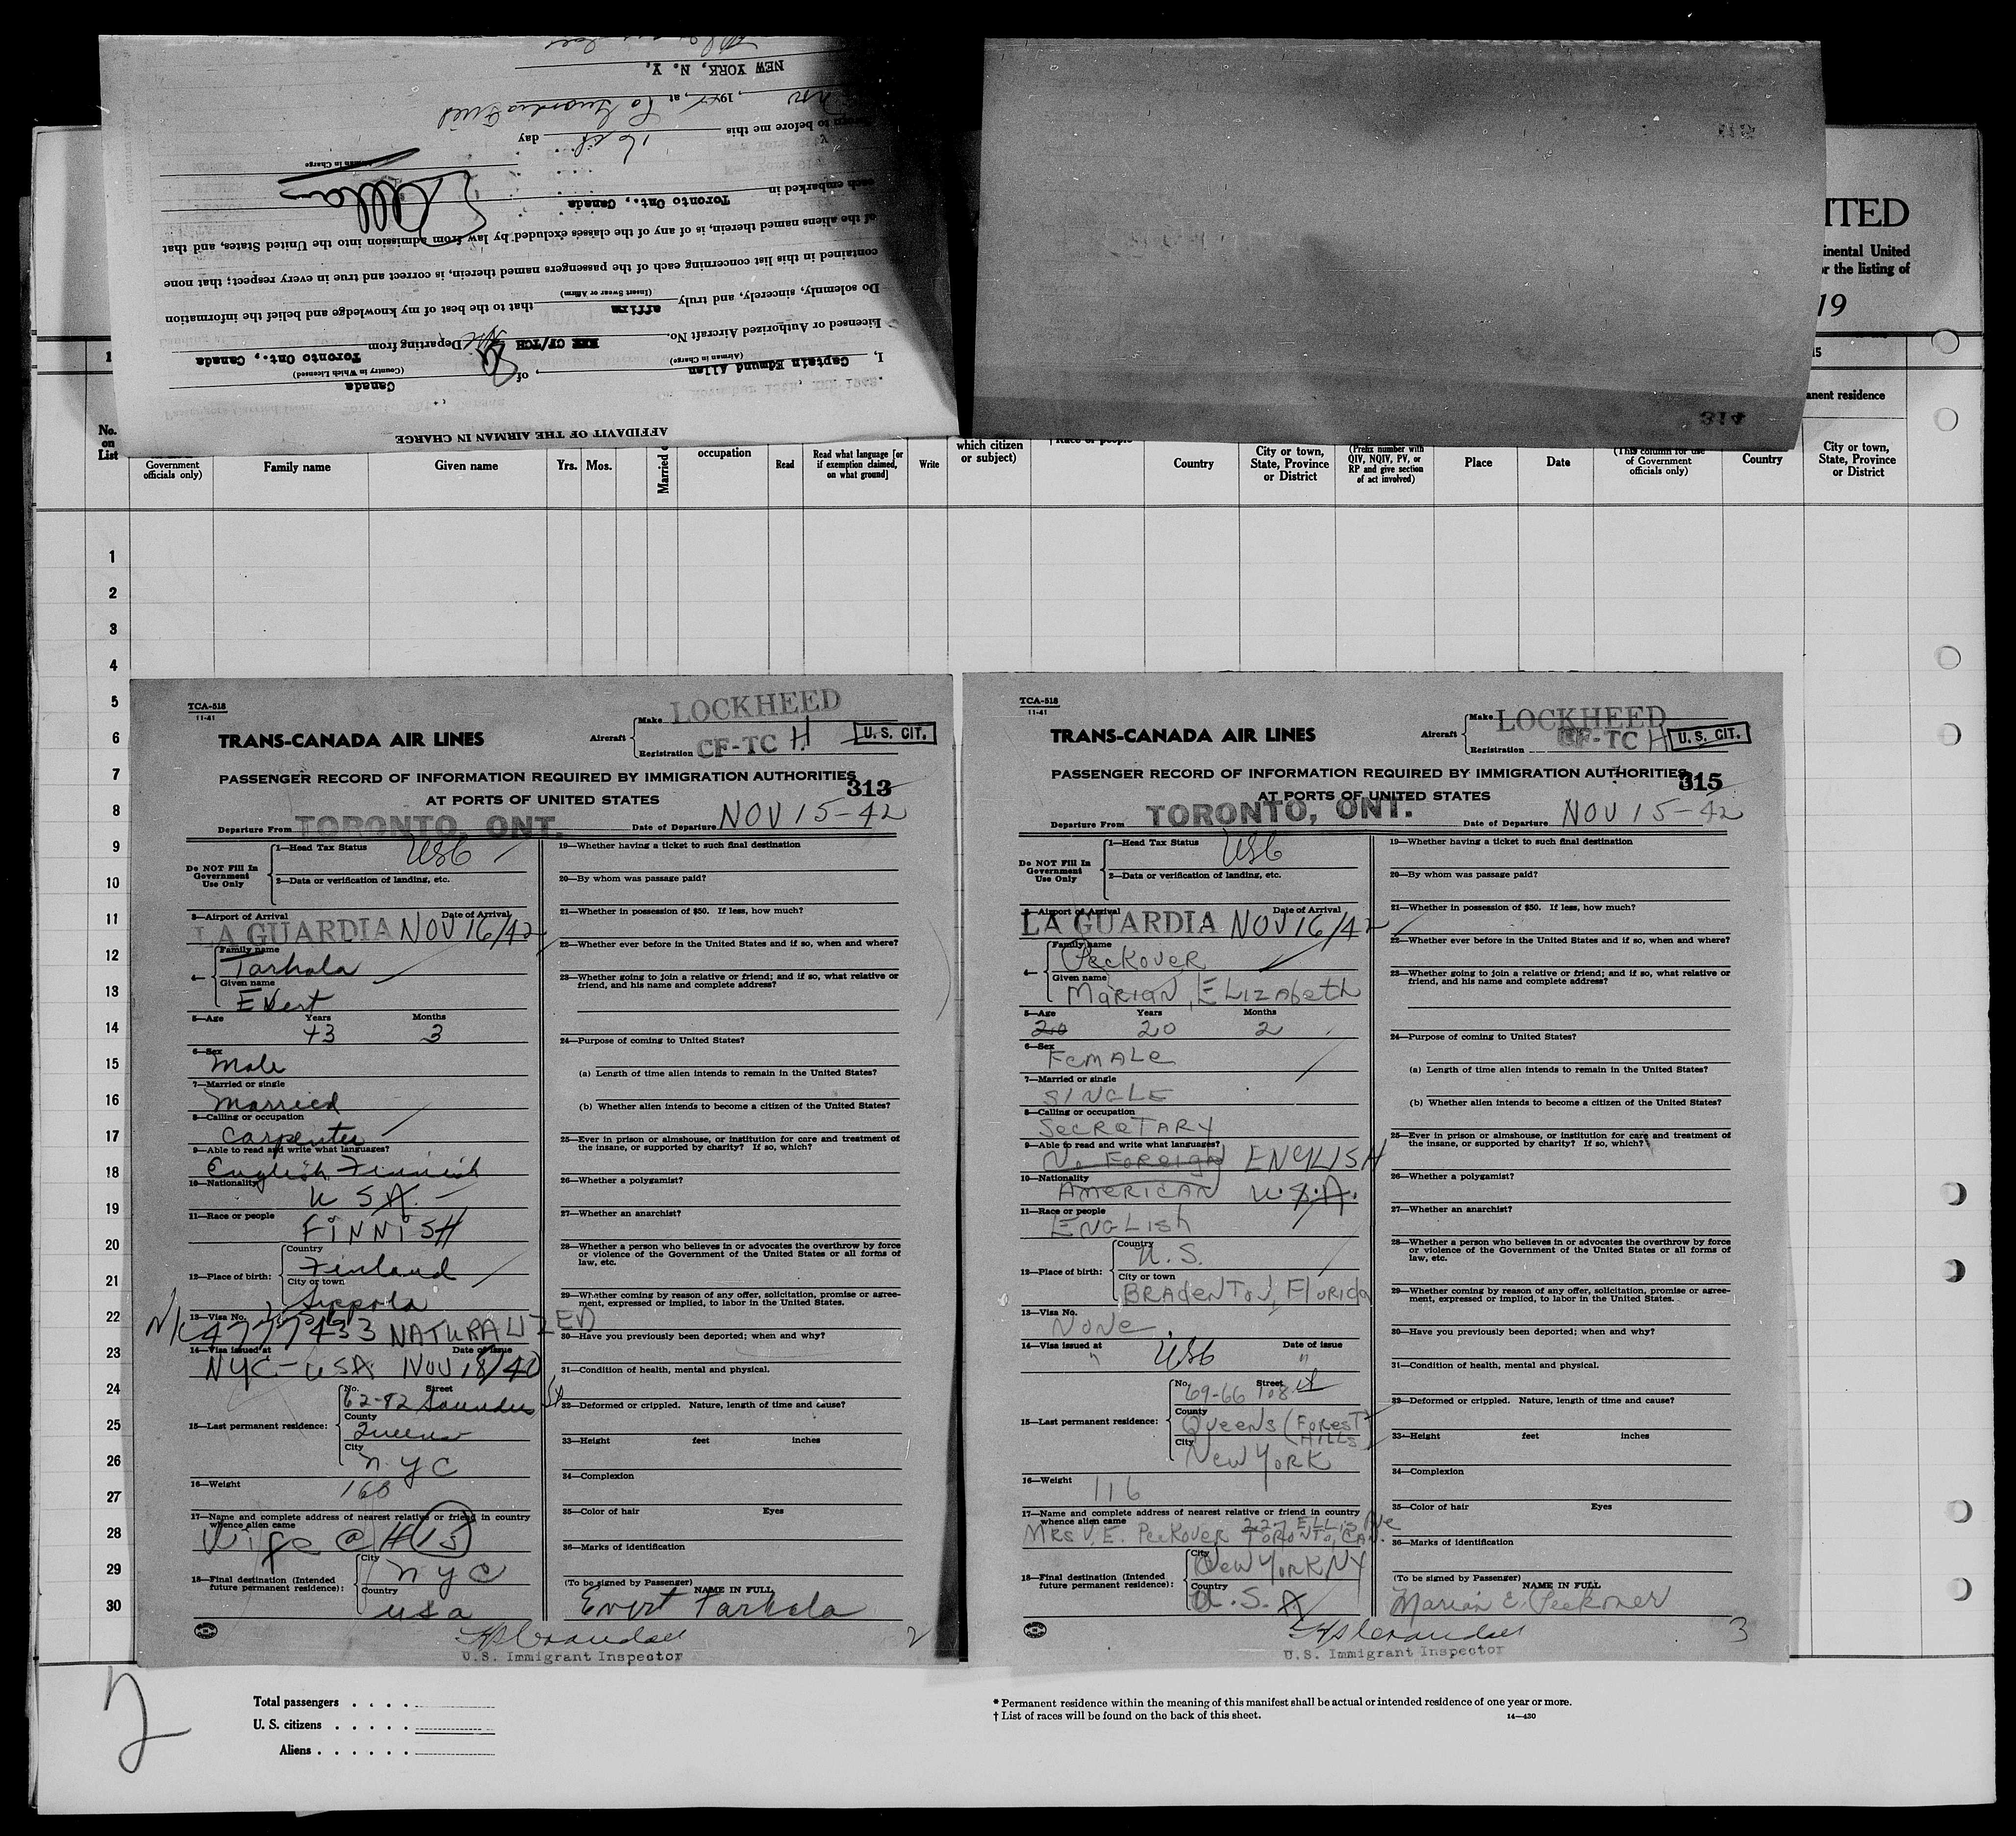 AFFIDAVIT OF THE AIRMAN IN CHARGE
I, Captain Edmund Allen, of Canada
(Airman in Charge) (Country in Which Licensed)
Licensed or Authorized Aircraft No. CF/TCH Departing from Toronto Ont., Canada
Do solemnly, sincerely, and truly affirm that to the best of my knowledge and belief the information
(Insert Swear or Affirm)
contained in this list concerning each of the passengers named therein, is correct and true in every respect; that none
of the aliens named therein, is of any of the classes excluded by law from admission into the United States, and that
each embarked in Toronto Ont., Canada
Airman in Charge
to before me this 16 day
, 194 , at La Guardia Field
NEW YORK, N. Y.
314
ITED
inental United
r the listing of
19
15
anent residence
No. on List
Government officials only)
Family name
Given name
Yrs. Mos.
Married o
occupation
Read
Read what language [or if exemption claimed, on what ground]
Write
which citizen or subject)
† Race or people
Country
City or town, State, Province or District
(Prefix number with QIV, NQIV, PV, or RP and give section of act involved)
Place
Date
(This column for use of Government officials only)
Country
City or town, State, Province or District
1
2
3
4
5
6
7
8
9
10
11
12
13
14
15
16
17
18
19
20
21
22
23
24
25
26
27
28
29
30
TCA-518
11-41
TRANS-CANADA AIR LINES
Aircraft
Make LOCKHEED
Registration CF-TC H
U. S. CIT.
PASSENGER RECORD OF INFORMATION REQUIRED BY IMMIGRATION AUTHORITIES
AT PORTS OF UNITED STATES
313
Departure From TORONTO, ONT. Date of Departure NOV 15-42
Do NOT Fill In Government Use Only
1—Head Tax Status USC
2—Data or verification of landing, etc.
3—Airport of Arrival Date of Arrival
LA GUARDIA NOV 16/42
4— Family name
Tarhola
Given name
Evert
5—Age Years Months
43 3
6—Sex
Male
7—Married or single
Married
8—Calling or occupation
Carpenter
9—Able to read and write what languages?
English Finnish
10—Nationality
U S A.
11—Race or people
FINNISH
12—Place of birth: Country
Finland
City or town
Sippola
13—Visa No.
N/C 4777433 NATURALIZED
14—Visa issued at Date of issue
NYC - USA NOV 18/40
15—Last permanent residence: No. Street
62-82 Saunders St
County
Queens
City
N.Y C
16—Weight
168
17—Name and complete address of nearest relative or friend in country
whence alien came
Wife @ # 15
18—Final destination (Intended future permanent residence): City
N Y C
Country
USA
19—Whether having a ticket to such final destination
20—By whom was passage paid?
21—Whether in possession of $50. If less, how much?
22—Whether ever before in the United States and if so, when and where?
23—Whether going to join a relative or friend; and if so, what relative or
friend, and his name and complete address?
24—Purpose of coming to United States?
(a) Length of time alien intends to remain in the United States?
(b) Whether alien intends to become a citizen of the United States?
25—Ever in prison or almshouse, or institution for care and treatment of
the insane, or supported by charity? If so, which?
26—Whether a polygamist?
27—Whether an anarchist?
28—Whether a person who believes in or advocates the overthrow by force
or violence of the Government of the United States or all forms of
law, etc.
29—Whether coming by reason of any offer, solicitation, promise or agree-
ment, expressed or implied, to labor in the United States.
30—Have you previously been deported; when and why?
31—Condition of health, mental and physical.
32—Deformed or crippled. Nature, length of time and cause?
33—Height feet inches
34—Complexion
35—Color of hair Eyes
36—Marks of identification
(To be signed by Passenger) NAME IN FULL
Evert Tarhola
U.S. Immigrant Inspector
2
TCA-518
11-41
TRANS-CANADA AIR LINES
Aircraft
Make LOCKHEED
Registration CF-TC H
U. S. CIT.
PASSENGER RECORD OF INFORMATION REQUIRED BY IMMIGRATION AUTHORITIES
AT PORTS OF UNITED STATES
315
Departure From TORONTO, ONT. Date of Departure NOV 15-42
Do NOT Fill In Government Use Only
1—Head Tax Status USC
2—Data or verification of landing, etc.
3—Airport of Arrival Date of Arrival
LA GUARDIA NOV 16/42
4— Family name
Peckover
Given name
Marian, Elizabeth
5—Age Years Months
20 20 2
6—Sex
Female
7—Married or single
SINGLE
8—Calling or occupation
Secretary
9—Able to read and write what languages?
No Foreign ENGLISH
10—Nationality
American U.S.A.
11—Race or people
English
12—Place of birth: Country
U.S.
City or town
Bradenton, Florida
13—Visa No.
None
14—Visa issued at Date of issue
" USC "
15—Last permanent residence: No. Street
69-66 108 St
County
Queens (Forest Hills)
City
New York
16—Weight
116
17—Name and complete address of nearest relative or friend in country
whence alien came
Mrs V. E. Peckover 227 Ellis Ave Toronto, Can.
18—Final destination (Intended future permanent residence): City
New York NY
Country
U.S.A
19—Whether having a ticket to such final destination
20—By whom was passage paid?
21—Whether in possession of $50. If less, how much?
22—Whether ever before in the United States and if so, when and where?
23—Whether going to join a relative or friend; and if so, what relative or
friend, and his name and complete address?
24—Purpose of coming to United States?
(a) Length of time alien intends to remain in the United States?
(b) Whether alien intends to become a citizen of the United States?
25—Ever in prison or almshouse, or institution for care and treatment of
the insane, or supported by charity? If so, which?
26—Whether a polygamist?
27—Whether an anarchist?
28—Whether a person who believes in or advocates the overthrow by force
or violence of the Government of the United States or all forms of
law, etc.
29—Whether coming by reason of any offer, solicitation, promise or agree-
ment, expressed or implied, to labor in the United States.
30—Have you previously been deported; when and why?
31—Condition of health, mental and physical.
32—Deformed or crippled. Nature, length of time and cause?
33—Height feet inches
34—Complexion
35—Color of hair Eyes
36—Marks of identification
(To be signed by Passenger) NAME IN FULL
Marian E. Peckover
U.S. Immigrant Inspector
3
2
Total passengers . . . .
U. S. citizens . . . . .
Aliens . . . . . .
* Permanent residence within the meaning of this manifest shall be actual or intended residence of one year or more.
† List of races will be found on the back of this sheet.
14—430